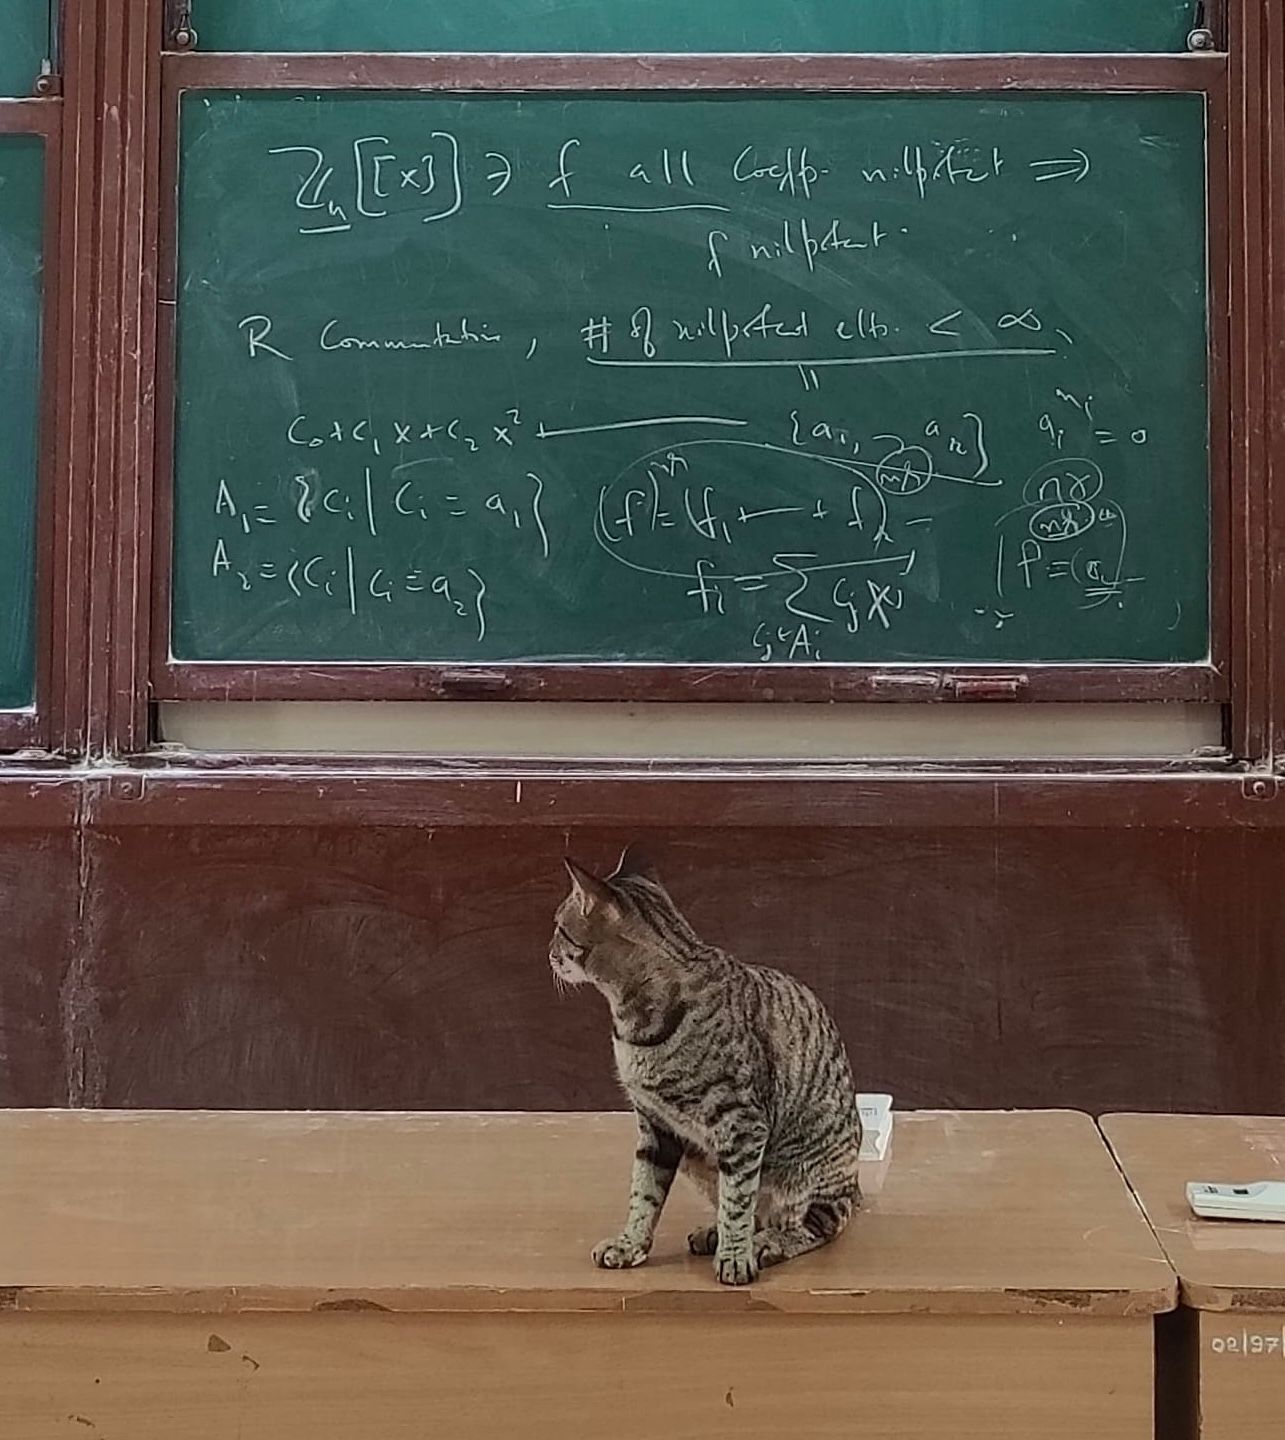 ℤₙ[[x]] ∋ f all coeffs. nilpotent ⇒
f nilpotent.
R Commutative, # of nilpotent elts. < ∞
||
c₀ + c₁x + c₂x² + —— {a₁, a_r} aᵢ^{nᵢ} = 0
A₁ = {cᵢ | cᵢ = a₁} (f) = (f₁ + — + f_r) nr
A₂ = {cᵢ | cᵢ = a₂} fᵢ = Σ cⱼ xʲ
cⱼ ∈ Aᵢ
02/97